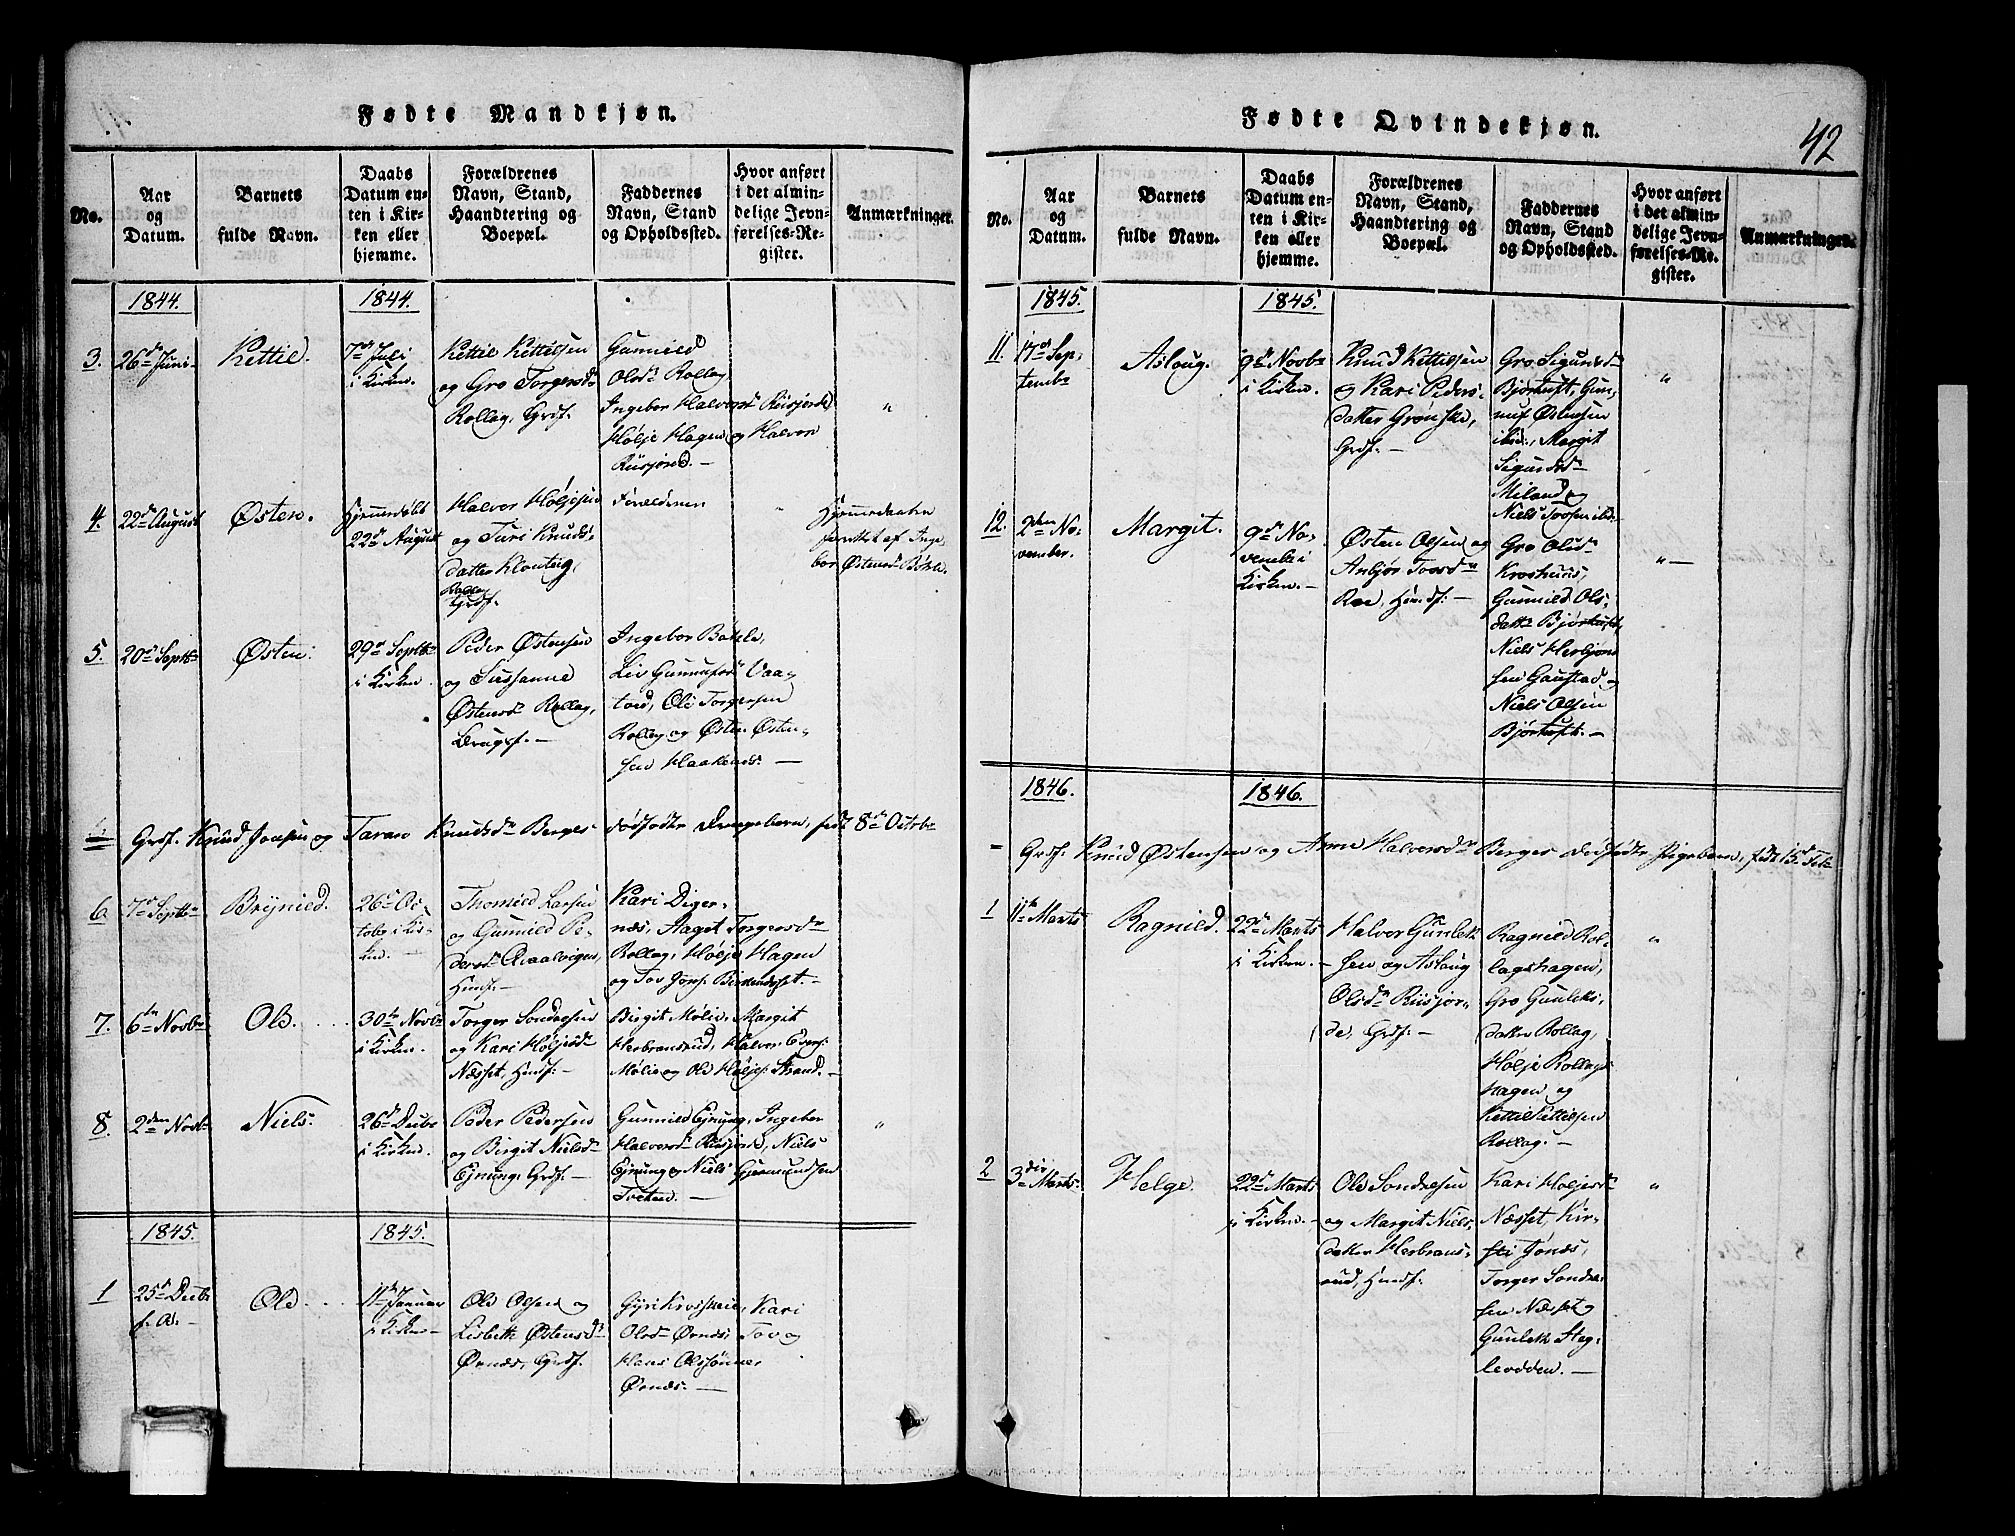 Fødte Mandkjøn.
No.
Aar
og
Datum.
Barnets
fulde Navn.
Daabs
Datum en-
ten i Kir-
ken eller
hjemme.
Forældrenes
Navn, Stand,
Haandtering og
Boepæl.
Faddernes
Navn, Stand
og Opholdssted.
Hvor anført
i det almin-
delige Jevn-
førelses-Re-
gister.
Anmærkninger.
1844.
1844.
3.
26de Juni
Kettil.
7de Juli
i Kirken.
Kettil Kettilsen
og Gro Torgersdr
Rollag, Grdf.
Gunnild
Olsdr Rollag
Ingebor Halversdr Riisjorde
Hølje Hagen og Halvor
Riisjorde. —
"
4.
22de August
Østen.
Hjemmedøbt
22de August
Halvor Høljesen
og Turi Knuds-
datter
Rollag
Grdf.
Forældrene
"
Hjemmedaaben
forrettet af Inge-
bor Østensdr Bøkle.
5.
20de Septbr
Østen.
29de Septbr
i Kirken.
Peder Østensen
og Sussanne
Østensdr Rollag,
Brugsf. —
Ingebor Bøkle,
Liv Gunnufsdr Vaa-
, Ole Torgersen
Rollag og Østen Østen-
sen Haakenæs. —
Grdf. Knud Joensen og Taran Knudsdr Berges dødfødte Drengebarn, født 8de Octobr
6.
7de Septbr
Brynild.
26de Oc-
tobr i Kir-
ken.
Thomild Larsen
og Gunnild Pe-
dersdr Qvaalvigen,
Huusf. —
Kari Diger-
næs, Aaget Torgersdr
Rollag, Hølje Hagen
og Tov Jons: . —
7.
6te Novbr
Ole.
30te Novbr
i Kirken.
Torger Sondresen
og Kari Høljesdr
Næsset, Huusf: —
Birgit Mølie, Margit
Herbransrud, Halvor
Mølie og Ole Høljes: Strand. —
8.
2den Novbr
Niels.
26de Decbr
i Kirken.
Peder Pedersen
og Birgit Nielsdr
Ejnung, Grdf. —
Gunnild Ejnung, Ingebor
Halversdr Riisjorde, Niels
Ejnung og Niels Gjermundsen
Tveten. —
"
1845.
1845.
1
25de Decbr
f. A. —
Ole
11te Januar
i Kirken —
Ole Olsen og
Lisbeth Østensdr
Ørnæs, Grdf.
Gyri Kroshuus, Kari
Olsdr Ørnæs; Tov og
Hans Olssønner
Ørnæs. —
Fødte Qvindekjøn.
42
No.
Aar
og
Datum.
Barnets
fulde Navn.
Daabs
Datum en-
ten i Kir-
ken eller
hjemme.
Forældrenes
Navn, Stand,
Haandtering og
Boepæl.
Faddernes
Navn, Stand
og Opholdssted.
Hvor anført
i det almin-
delige Jevn-
førelses-Re-
gister.
Anmærkninger.
1845.
1845.
11.
17de Sep-
tembr
Aslaug.
9de Novbr
i Kirken.
Knud Kettilsen
og Kari Peders-
datter ,
Grdf. —
Gro Sigursdr
Bjørtuft, Gun-
nuf Østensen
ibid:, Margit
Sigurdsdr
Miland og
Niels Tovsen ibid:
"
12.
2den No-
vember.
Margit.
9de No-
vembr i
Kirken. —
Østen Olsen og
Anbjør Tovsdr
Roe, Huusf: —
Gro Olsdr
Kroshuus,
Gunnild Ols-
datr Bjørtuft,
Niels Herbjørn-
sen Gaustad og
Niels Olsen
Bjørtuft. —
" —
1846.
1846.
— Grdf. Knud Østensen og Anne Halversdr Berges dødfødte Pigebarn, født 15de Febr
1
11te Marts
Ragnild.
22de Marts
i Kirken. —
Halvor Gunlek-
sen og Aslaug
Olsdr Riisjor-
de, Grdf: —
Ragnild Rol-
lagshagen,
Gro Gunleks-
datter Rollag,
Hølje Rollags-
hagen og
Kettil Kettilsen
Rollag. —
"
2
3die Marts.
Helge.
22de Marts
i Kirken. —
Ole Sondresen
og Margit Niels-
datter Herbrans-
rud, Huusf.
Kari Høljesdr
Næsset, Kir-
sti ,
Torger Sondre-
sen Næsset og
Gunlek Steg-
leodden. —
"